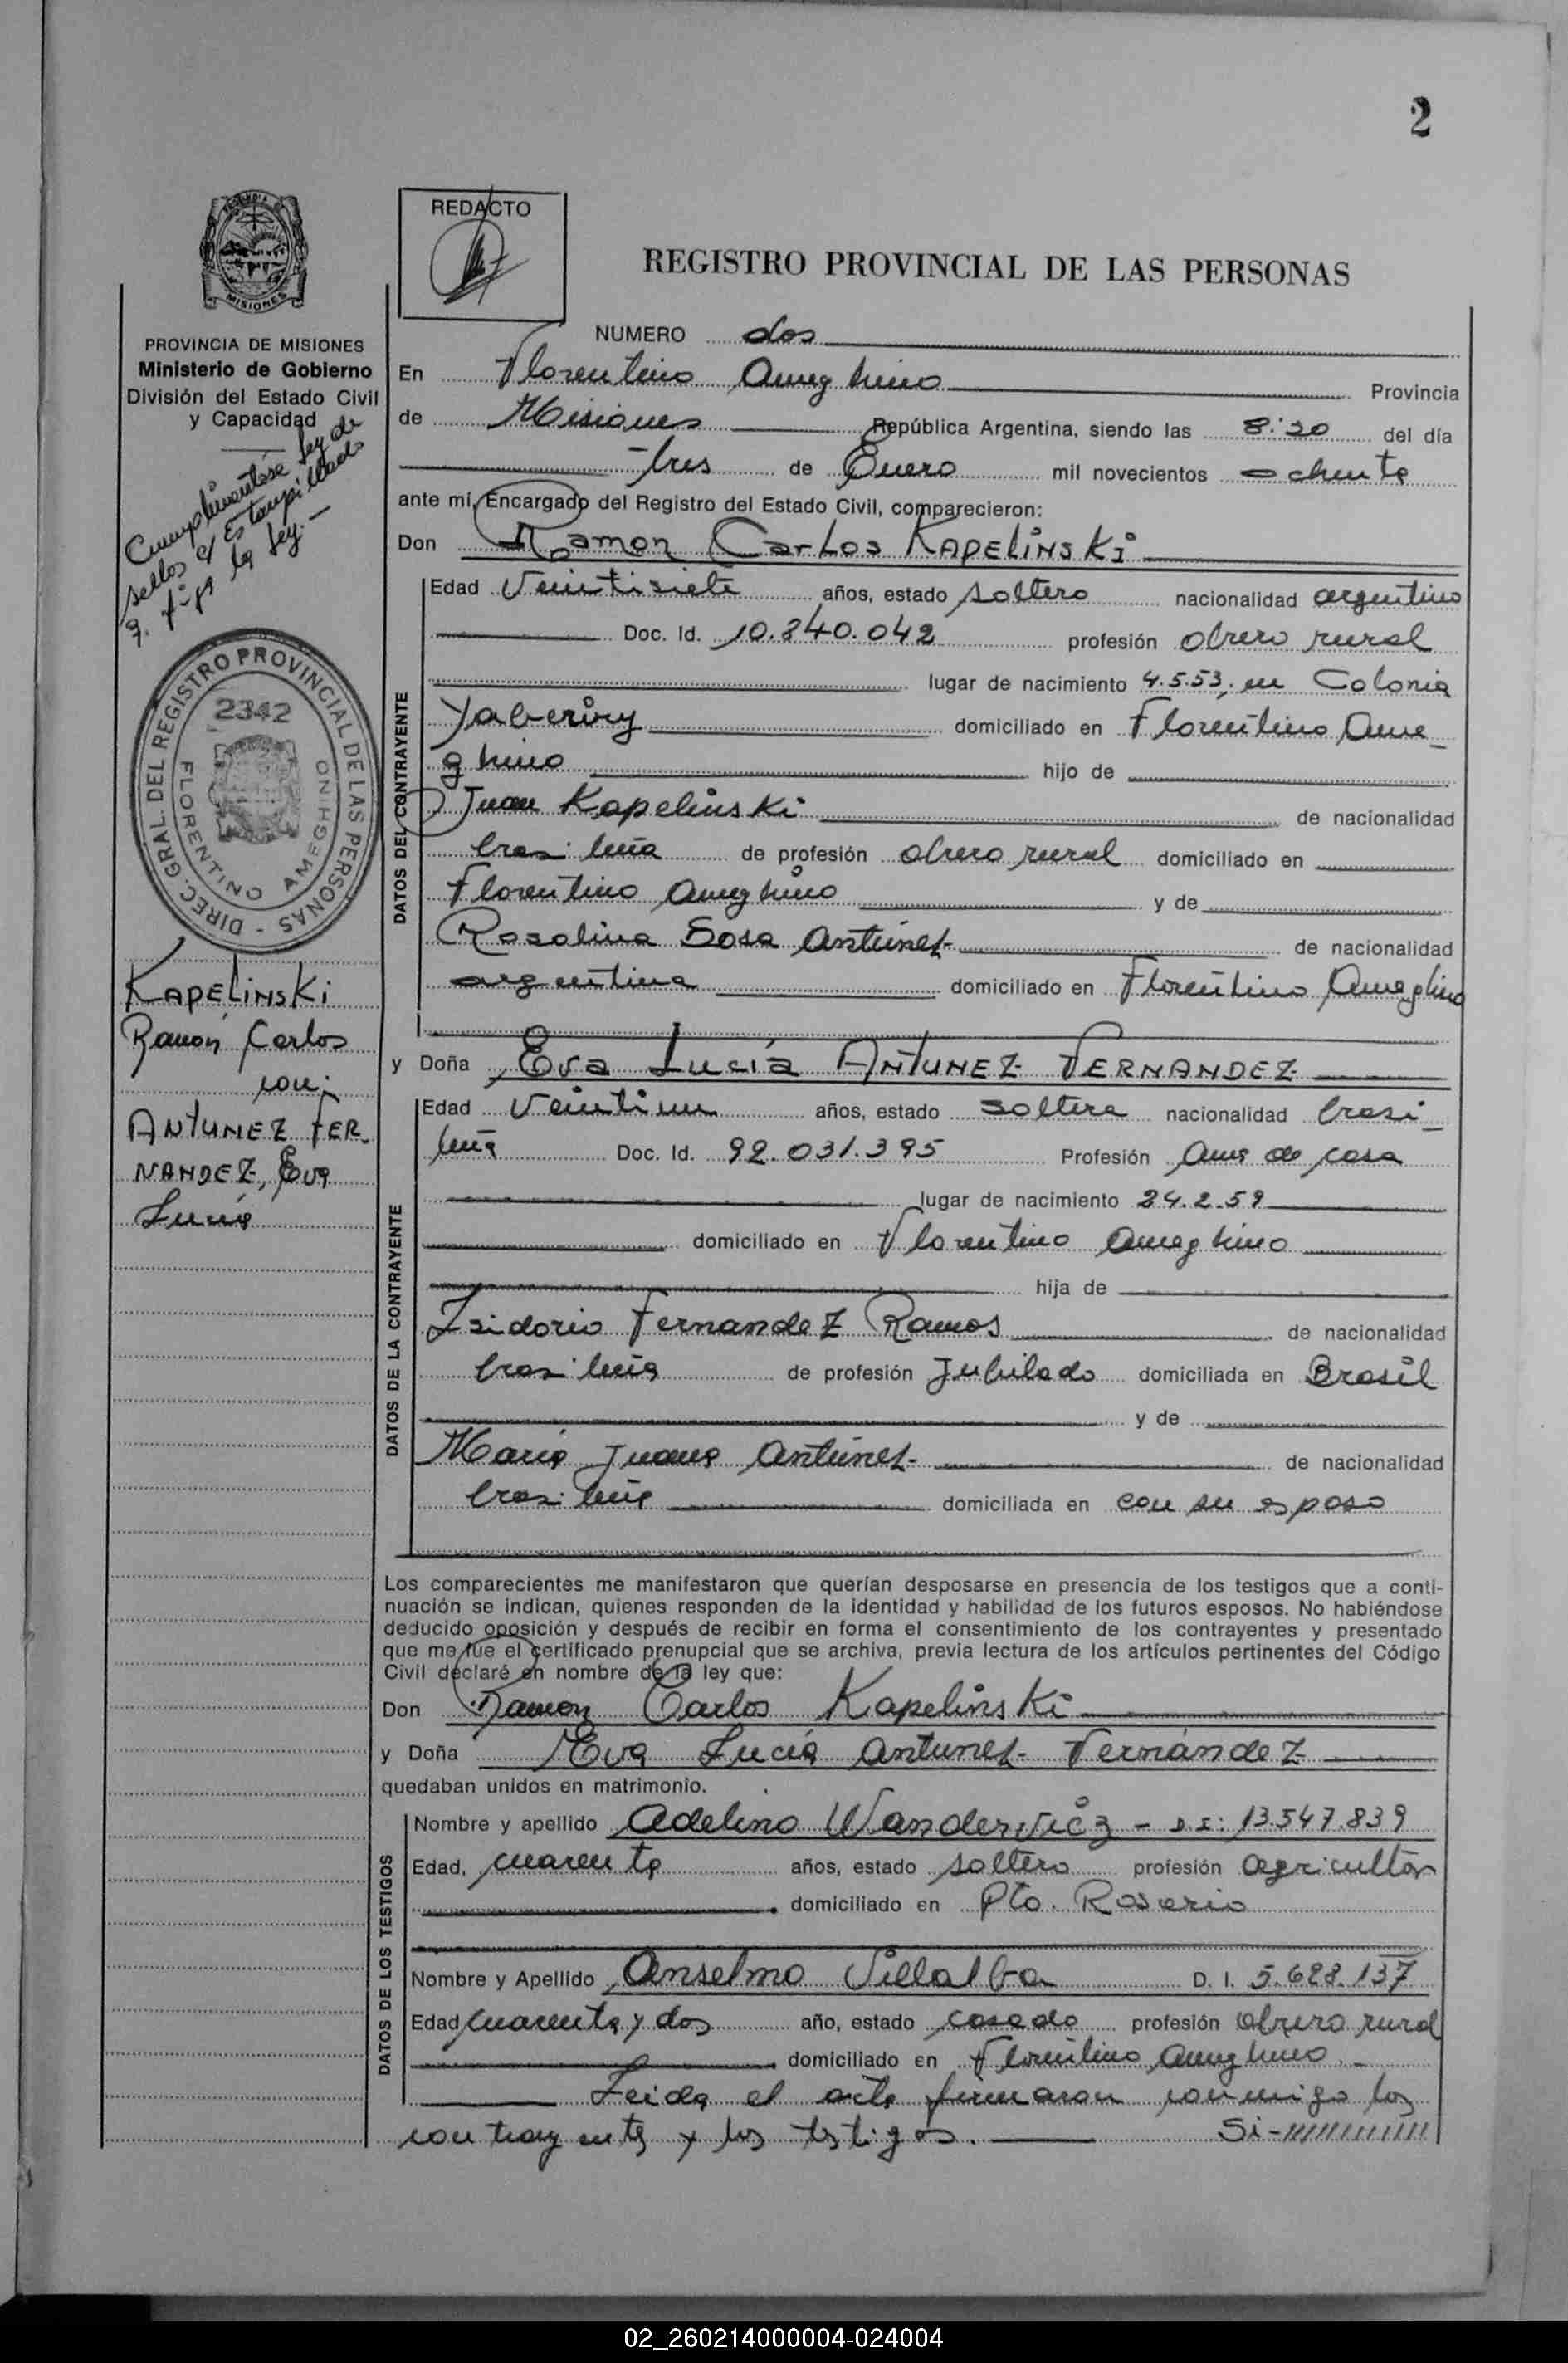 2
REDACTO
REGISTRO PROVINCIAL DE LAS PERSONAS
MISIONES
PROVINCIA DE MISIONES
Ministerio de Gobierno
División del Estado Civil
y Capacidad
Cumplimentóse ley de
sellos c/ Estampillado
la ley.-
DIREC. GRAL. DEL REGISTRO PROVINCIAL DE LAS PERSONAS -
2342
FLORENTINO AMEGHINO
KAPELINSKI
Ramón Carlos
con:
ANTUNEZ FER-
NANDEZ, Eva
Lucía
NUMERO dos
En Florentino Ameghino Provincia
de Misiones República Argentina, siendo las 8:30 del día
tres de Enero mil novecientos ochenta
ante mí, Encargado del Registro del Estado Civil, comparecieron:
Don Ramon Carlos KAPELINSKI
DATOS DEL CONTRAYENTE
Edad Veintisiete años, estado soltero nacionalidad argentino
Doc. Id. 10.840.042 profesión obrero rural
lugar de nacimiento 4.5.53, en Colonia
Yaberiry domiciliado en Florentino Ame-
ghino hijo de
Juan Kapelinski de nacionalidad
brasileña de profesión obrero rural domiciliado en
Florentino Ameghino y de
Rosalina Sosa Antúnez de nacionalidad
argentina domiciliado en Florentino Ameghino
y Doña Eva Lucía ANTUNEZ FERNANDEZ
DATOS DE LA CONTRAYENTE
Edad Veintiun años, estado soltera nacionalidad brasi-
leña Doc. Id. 92.031.395 Profesión Ama de casa
lugar de nacimiento 24.2.59
domiciliado en Florentino Ameghino
hija de
Isidorio Fernandez Ramos de nacionalidad
brasileña de profesión Jubilado domiciliada en Brasil
y de
María Juana Antúnez de nacionalidad
brasileña domiciliada en con su esposo
Los comparecientes me manifestaron que querían desposarse en presencia de los testigos que a conti-
nuación se indican, quienes responden de la identidad y habilidad de los futuros esposos. No habiéndose
deducido oposición y después de recibir en forma el consentimiento de los contrayentes y presentado
que me fue el certificado prenupcial que se archiva, previa lectura de los artículos pertinentes del Código
Civil declaré en nombre de la ley que:
Don Ramon Carlos Kapelinski
y Doña Eva Lucía Antunez Fernández
quedaban unidos en matrimonio.
DATOS DE LOS TESTIGOS
Nombre y apellido Adelino Wandervicz - D.I: 13.547.839
Edad, cuarenta años, estado soltero profesión agricultor
domiciliado en Pto. Rosario
Nombre y Apellido Anselmo Villalba D. I. 5.688.137
Edad cuarenta y dos año, estado casado profesión obrero rural
domiciliado en Florentino Ameghino.-
Leida el acta firmaron conmigo los
contrayentes y los testigos. Si-////////////
02_260214000004-024004